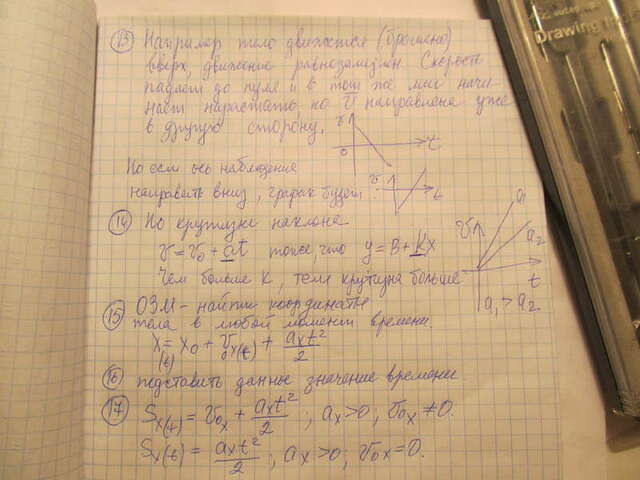 13 Например тело движется (брошено)
вверх, движение равнозамедлен. Скорость
падает до нуля и в тот же миг начи-
нает нарастать, но v̄ направлена уже
в другую сторону.
v
0
t
Но если ось наблюдения
направить вниз, график будет:
v
t
14 По крутизне наклона
v = v₀ + at тоже, что y = B + kx
Чем больше k, тем крутизна больше
v
a₁
a₂
t
a₁ > a₂
15 ОЗМ - найти координаты
тела в любой момент времени.
x(t) = x₀ + v₀x(t) + axt²/2
16 подставить данные значение времени.
17 Sx(t) = v₀x + axt²/2 ; ax>0; v₀x ≠ 0.
Sx(t) = axt²/2 ; ax>0; v₀x = 0.
Drawing